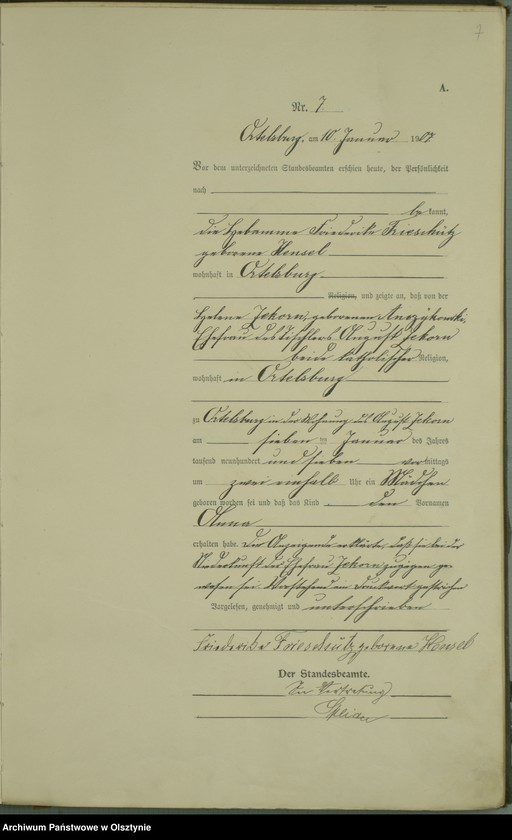 7
A.
Nr. 7.
Ortelsburg, am 10. Januar 1907
Vor dem unterzeichneten Standesbeamten erschien heute, der Persönlichkeit
nach
be kannt,
die Hebamme Friederike Frieschütz
geborene Hensel
wohnhaft in Ortelsburg
Religion, und zeigte an, daß von der
Helene Jekorn, geborenen
Ehefrau des Tischlers August Jekorn
beide katholischer Religion,
wohnhaft in Ortelsburg
zu Ortelsburg in der Wohnung des August Jekorn
am sieben ten Januar des Jahres
tausend neunhundert und sieben vormittags
um zwei einhalb Uhr ein Mädchen
geboren worden sei und daß das Kind den Vornamen
Anna
erhalten habe. Die Anzeigende erklärte, daß sie bei der
Niederkunft der Ehefrau Jekorn zugegen ge-
wesen sei. Vorstehend ein Druckwort gestrichen
Vorgelesen, genehmigt und unterschrieben
Friederike Frieschütz geborene Hensel
Der Standesbeamte.
In Vertretung
Archiwum Państwowe w Olsztynie